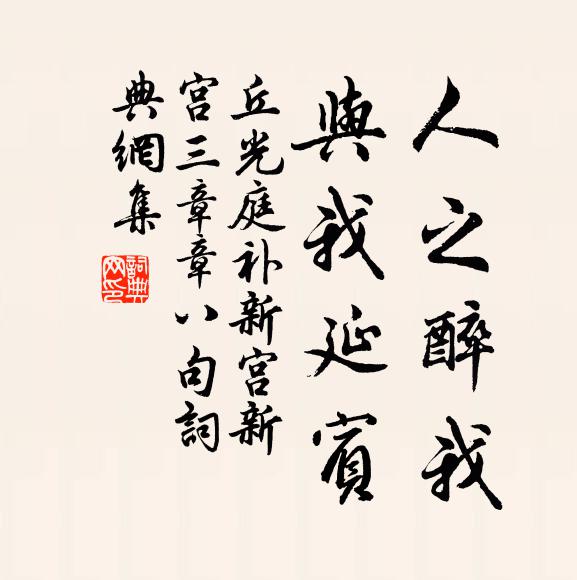 人之醉我
與我延賓
丘光庭补新宫新
宫三章章八句詞
典網集
詞典
网印